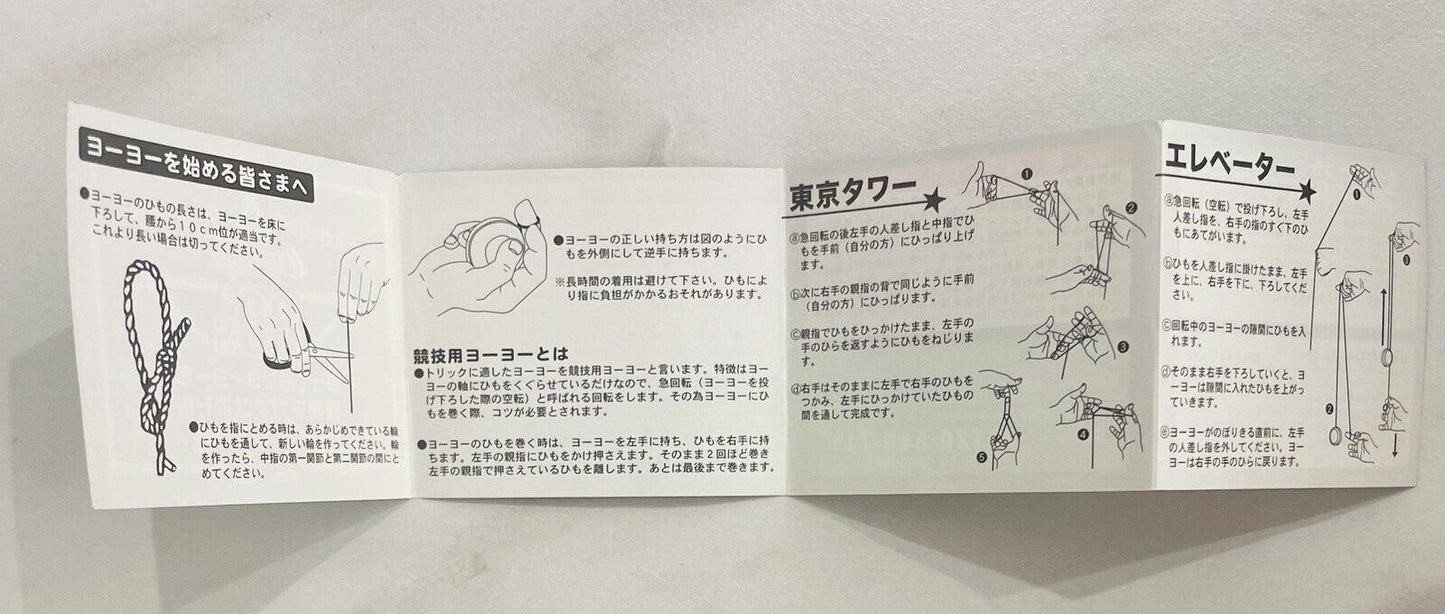 ヨーヨーを始める皆さまへ
●ヨーヨーのひもの長さは、ヨーヨーを床に
下ろして、腰から１０ｃｍ位が適当です。
これより長い場合は切ってください。
●ひもを指にとめる時は、あらかじめできている輪
にひもを通して、新しい輪を作ってください。輪
を作ったら、中指の第一関節と第二関節の間にと
めてください。
●ヨーヨーの正しい持ち方は図のようにひ
もを外側にして逆手に持ちます。
※長時間の着用は避けて下さい。ひもによ
り指に負担がかかるおそれがあります。
競技用ヨーヨーとは
●トリックに適したヨーヨーを競技用ヨーヨーと言います。特徴はヨー
ヨーの軸にひもをくぐらせているだけなので、急回転（ヨーヨーを投
げ下ろした際の空転）と呼ばれる回転をします。その為ヨーヨーにひ
もを巻く際、コツが必要とされます。
●ヨーヨーのひもを巻く時は、ヨーヨーを左手に持ち、ひもを右手に持
ちます。左手の親指にひもをかけ押さえます。そのまま２回ほど巻き
左手の親指で押さえているひもを離します。あとは最後まで巻きます。
東京タワー★
ⓐ急回転の後左手の人差し指と中指でひ
もを手前（自分の方）にひっぱり上げ
ます。
ⓑ次に右手の親指の背で同じように手前
（自分の方）にひっぱります。
ⓒ親指でひもをひっかけたまま、左手の
手のひらを返すようにひもをねじりま
す。
ⓓ右手はそのままに左手で右手のひもを
つかみ、左手にひっかけていたひもの
間を通して完成です。
❶
❷
❸
❹
❺
エレベーター★
ⓐ急回転（空転）で投げ下ろし、左手
人差し指を、右手の指のすぐ下のひ
もにあてがいます。
ⓑひもを人差し指に掛けたまま、左手
を上に、右手を下に、下ろしてくだ
さい。
ⓒ回転中のヨーヨーの隙間にひもを入
れます。
ⓓそのまま右手を下ろしていくと、ヨ
ーヨーは隙間に入れたひもを上がっ
ていきます。
ⓔヨーヨーがのぼりきる直前に、左手
の人差し指を外してください。ヨー
ヨーは右手の手のひらに戻ります。
❶
❷
❸